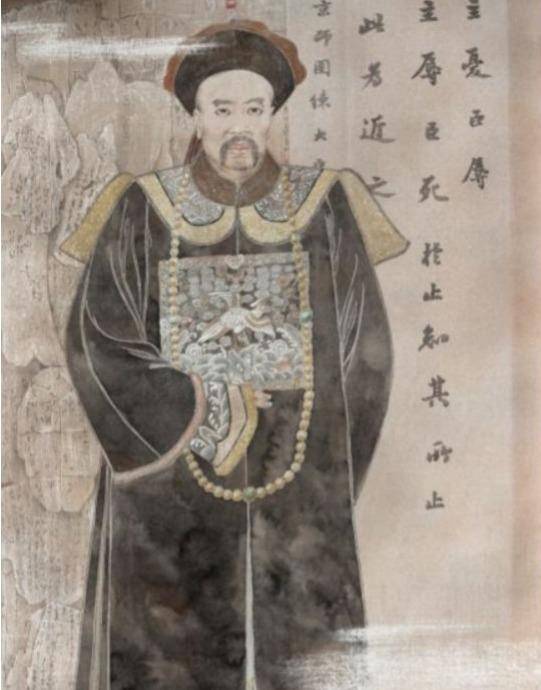 主憂臣辱
主辱臣死於止知其所止
此為近之
京師團練大臣